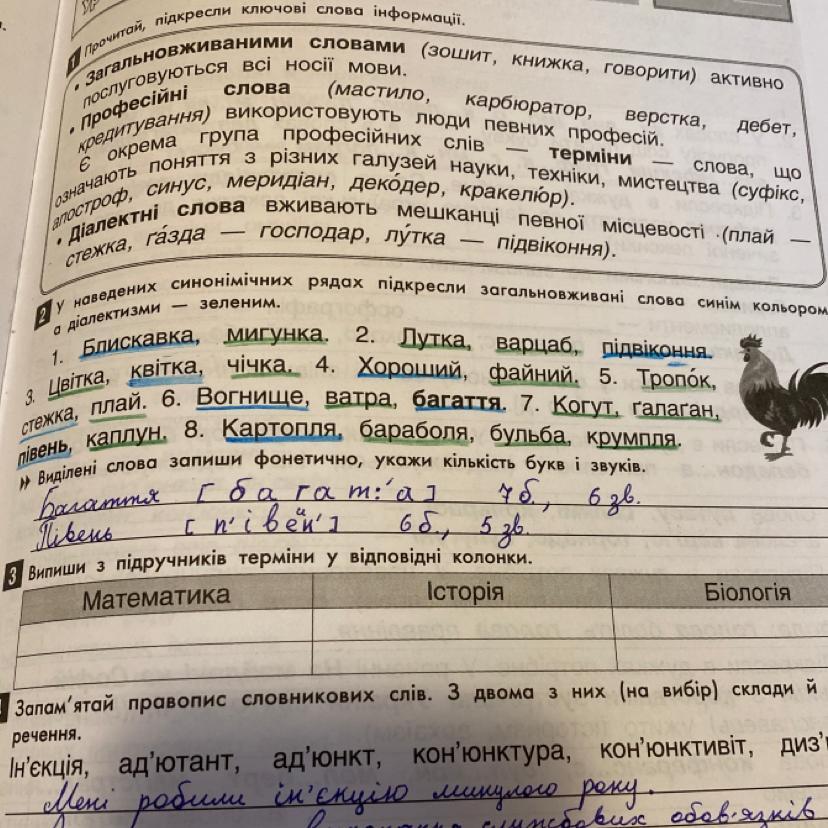 1 Прочитай, підкресли ключові слова інформації.
• Загальновживаними словами (зошит, книжка, говорити) активно
послуговуються всі носії мови.
• Професійні слова (мастило, карбюратор, верстка, дебет,
кредитування) використовують люди певних професій.
Є окрема група професійних слів — терміни — слова, що
означають поняття з різних галузей науки, техніки, мистецтва (суфікс,
апостроф, синус, меридіан, деко́дер, кракелю́р).
• Діалектні слова вживають мешканці певної місцевості (плай —
стежка, ґа́зда — господар, лу́тка — підвіконня).
2 У наведених синонімічних рядах підкресли загальновживані слова синім кольором,
а діалектизми — зеленим.
1. Блискавка, мигунка. 2. Лутка, варцаб, підвіконня.
3. Цвітка, квітка, чічка. 4. Хороший, файний. 5. Тропо́к,
стежка, плай. 6. Вогнище, ватра, багаття. 7. Когут, ґалаґан,
півень, каплун. 8. Картопля, бараболя, бульба, крумпля.
Виділені слова запиши фонетично, укажи кількість букв і звуків.
Багаття [б а г а т:′а] 7 б., 6 зв.
Півень [п′івеиⁿ′] 6 б., 5 зв.
3 Випиши з підручників терміни у відповідні колонки.
Математика Історія Біологія
Запам'ятай правопис словникових слів. З двома з них (на вибір) склади й
речення.
Ін'єкція, ад'ютант, ад'юнкт, кон'юнктура, кон'юнктивіт,
Мені робили ін'єкцію минулого року.
службових обов'язків